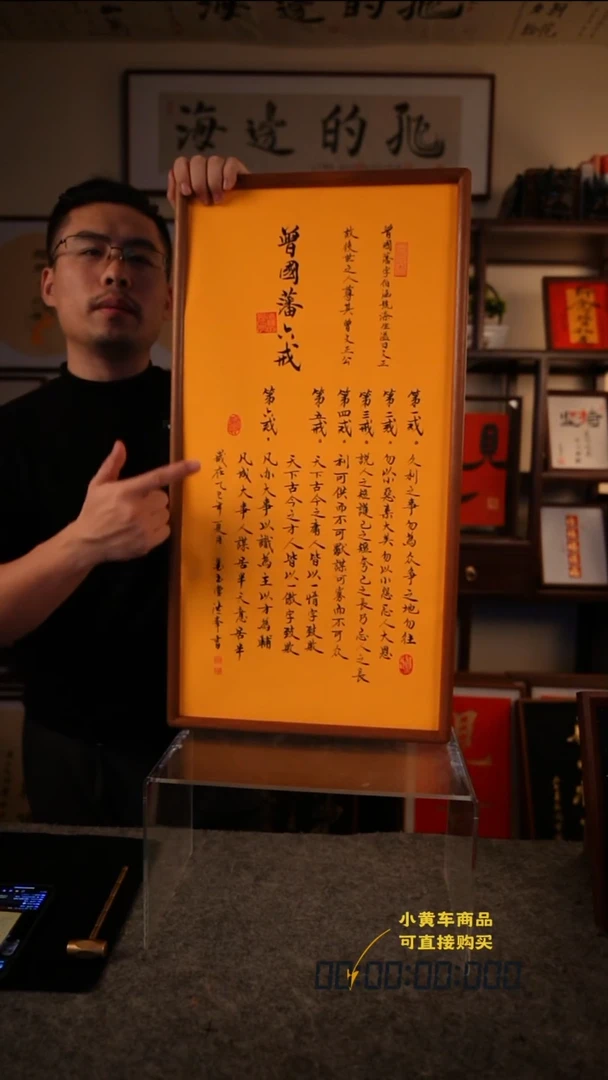 海邊的
曾國藩字伯涵號滌生謚曰文正
故後世之人尊其曾文正公
曾國藩六戒
第一戒。久利之事勿為众爭之地勿往
第二戒。勿以小惡棄大美勿以小怨忘人大恩
第三戒。說人之短護己之短夸己之長乃忌人之長
第四戒。利可供而不可獨謀可寡而不可众
第五戒。天下古今之庸人皆以一惰字致敗
天下古今之才人皆以一傲字致敗
第六戒。凡办大事以識為主以才為輔
凡成大事人謀居半天意居半
歲在乙巳年夏月
小黄车商品
可直接购买
00:00:00:000